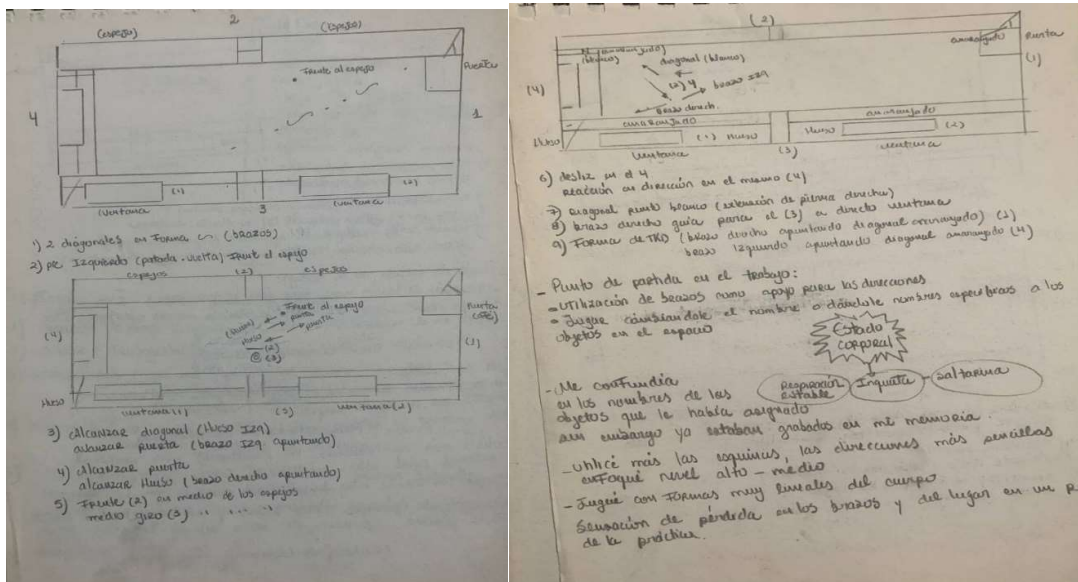 2
(espejo)
(espejo)
Frente al espejo
Puerta
4
1
(1)
(2)
(ventana
(ventana
3
1) 2 diagonales en Forma (brazos)
2) pie Izquierdo (patada - vuelta) Frente el espejo
espejos
(2)
espejos
Frente al espejo
Puerta
(Hueso)
puerta
puerta
Hueso
(2)
(3)
(4)
(1)
Hueso
ventana(1)
(3)
ventana(2)
3) Alcanzar diagonal (Hueso Izq)
avanzar puerta (brazo Izq apuntando)
4) Alcanzar puerta
alcanzar Hueso (brazo derecho apuntando)
5) Frente (2) en medio de los espejos
medio giro (3) " " " "
(2)
anaranjado
Puerta
(1)
anaranjado)
(blanco)
diagonal (blanco)
(2) 4
brazo Izq
brazo derech.
(4)
anaranjado
anaranjado
Hueso
(1) Hueso
Hueso
(2)
ventana
(3)
ventana
6) desliz en el 4
reacción en dirección en el mismo (4)
7) Diagonal punto blanco (extensión de pierna derecha)
8) brazo derecho guia para el (3) en directo ventana
9) Forma de TKD (brazo derecho apuntando diagonal anaranjado) (2)
brazo izquierdo apuntando diagonal anaranjado (4)
- Punto de partida en el trabajo:
- utilización de brazos como apoyo para las direcciones
- Jugar cambiandole el nombre o dándole nombres especificos a los
objetos en el espacio
Estado
corporal
- Me confundia
en los nombres de los
objetos que le había asignado
sin embargo ya estaban grabados en mi memoria.
Respiración
estable
Inquieta
- saltarina
- Utilicé más las esquinas, las direcciones más sencillas
enfoqué nivel alto - medio
- Jugué con Formas muy lineales del cuerpo
Sensación de pérdida en los brazos y del lugar en un
de la práctica.